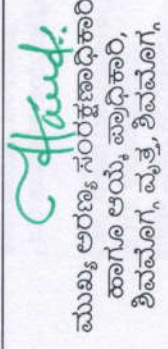 ಮುಖ್ಯ ಅರಣ್ಯ ಸಂರಕ್ಷಣಾಧಿಕಾರಿ
ಹಾಗೂ ಆಯ್ಕೆ ಪ್ರಾಧಿಕಾರಿ,
ಶಿವಮೊಗ್ಗ ವೃತ್ತ, ಶಿವಮೊಗ್ಗ